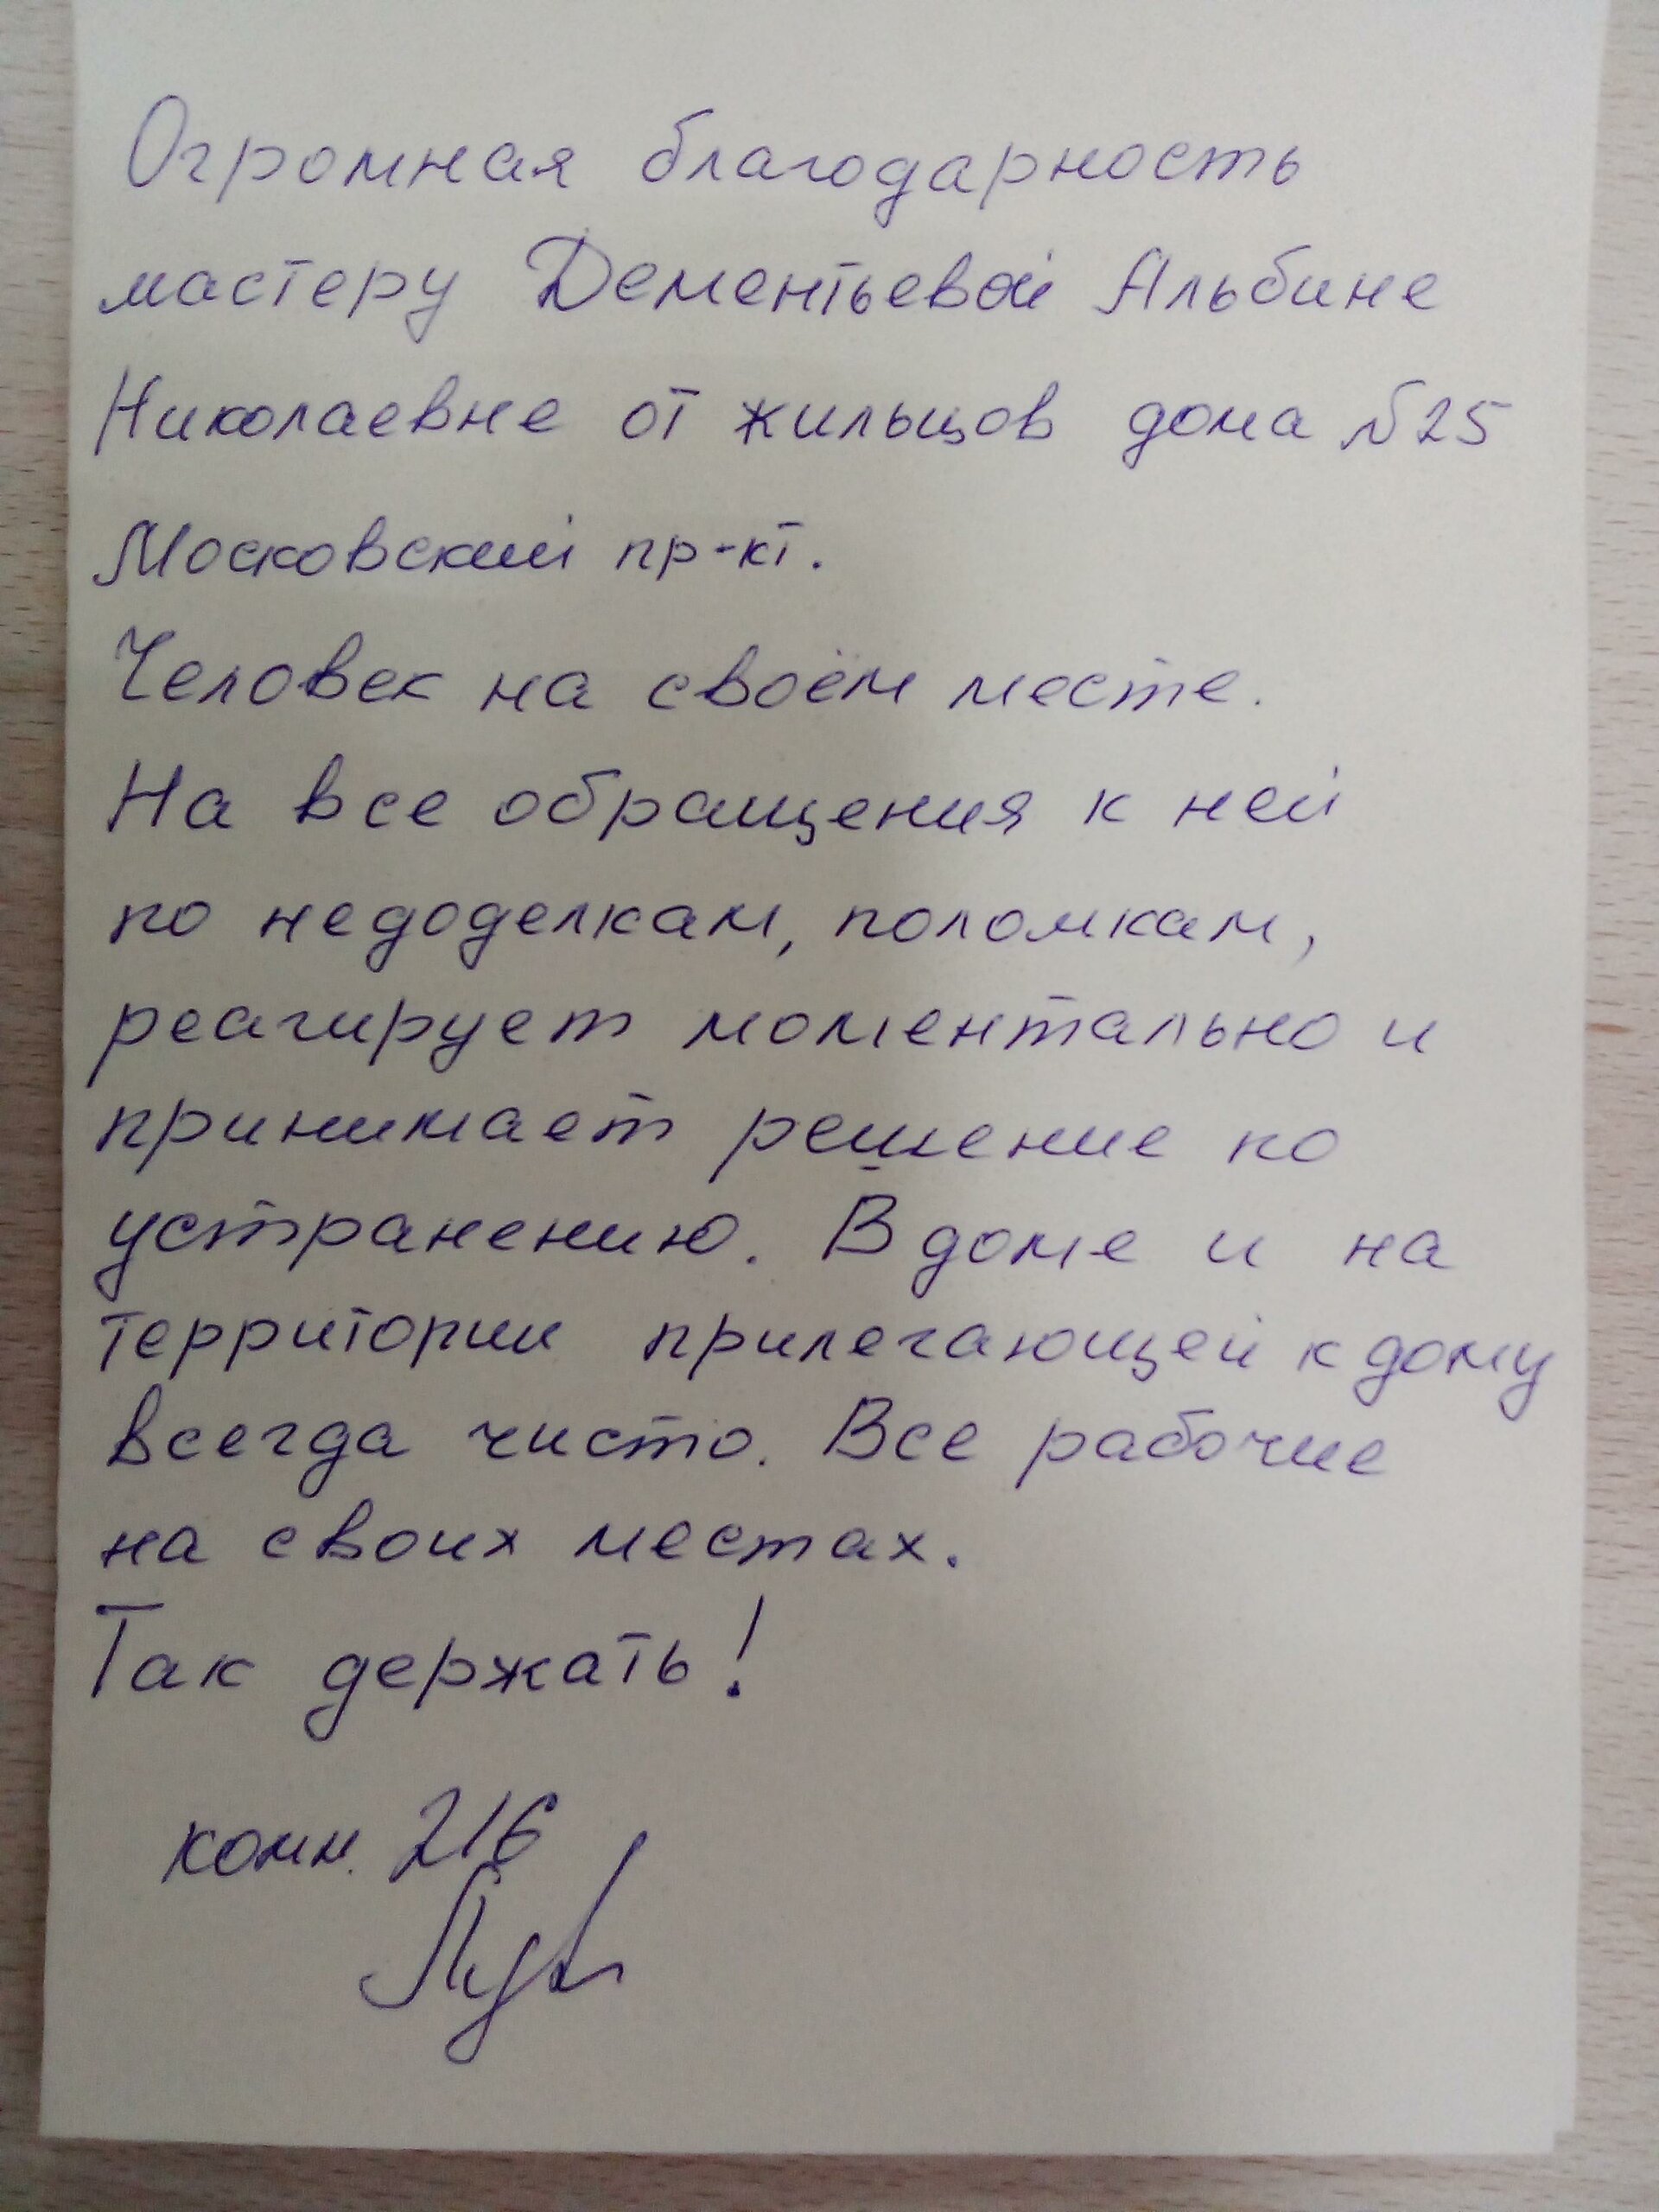 Огромная благодарность
мастеру Дементьевой Альбине
Николаевне от жильцов дома №25
Московский пр-кт.
Человек на своём месте.
На все обращения к ней
по недоделкам, поломкам,
реагирует моментально и
принимает решение по
устранению. В доме и на
территории прилегающей к дому
всегда чисто. Все рабочие
на своих местах.
Так держать!
комн. 216